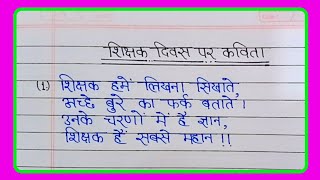 शिक्षक दिवस पर कविता
(1) शिक्षक हमें लिखना सिखाते,
अच्छे बुरे का फर्क बताते।
उनके चरणों में है ज्ञान,
शिक्षक हैं सबसे महान !!